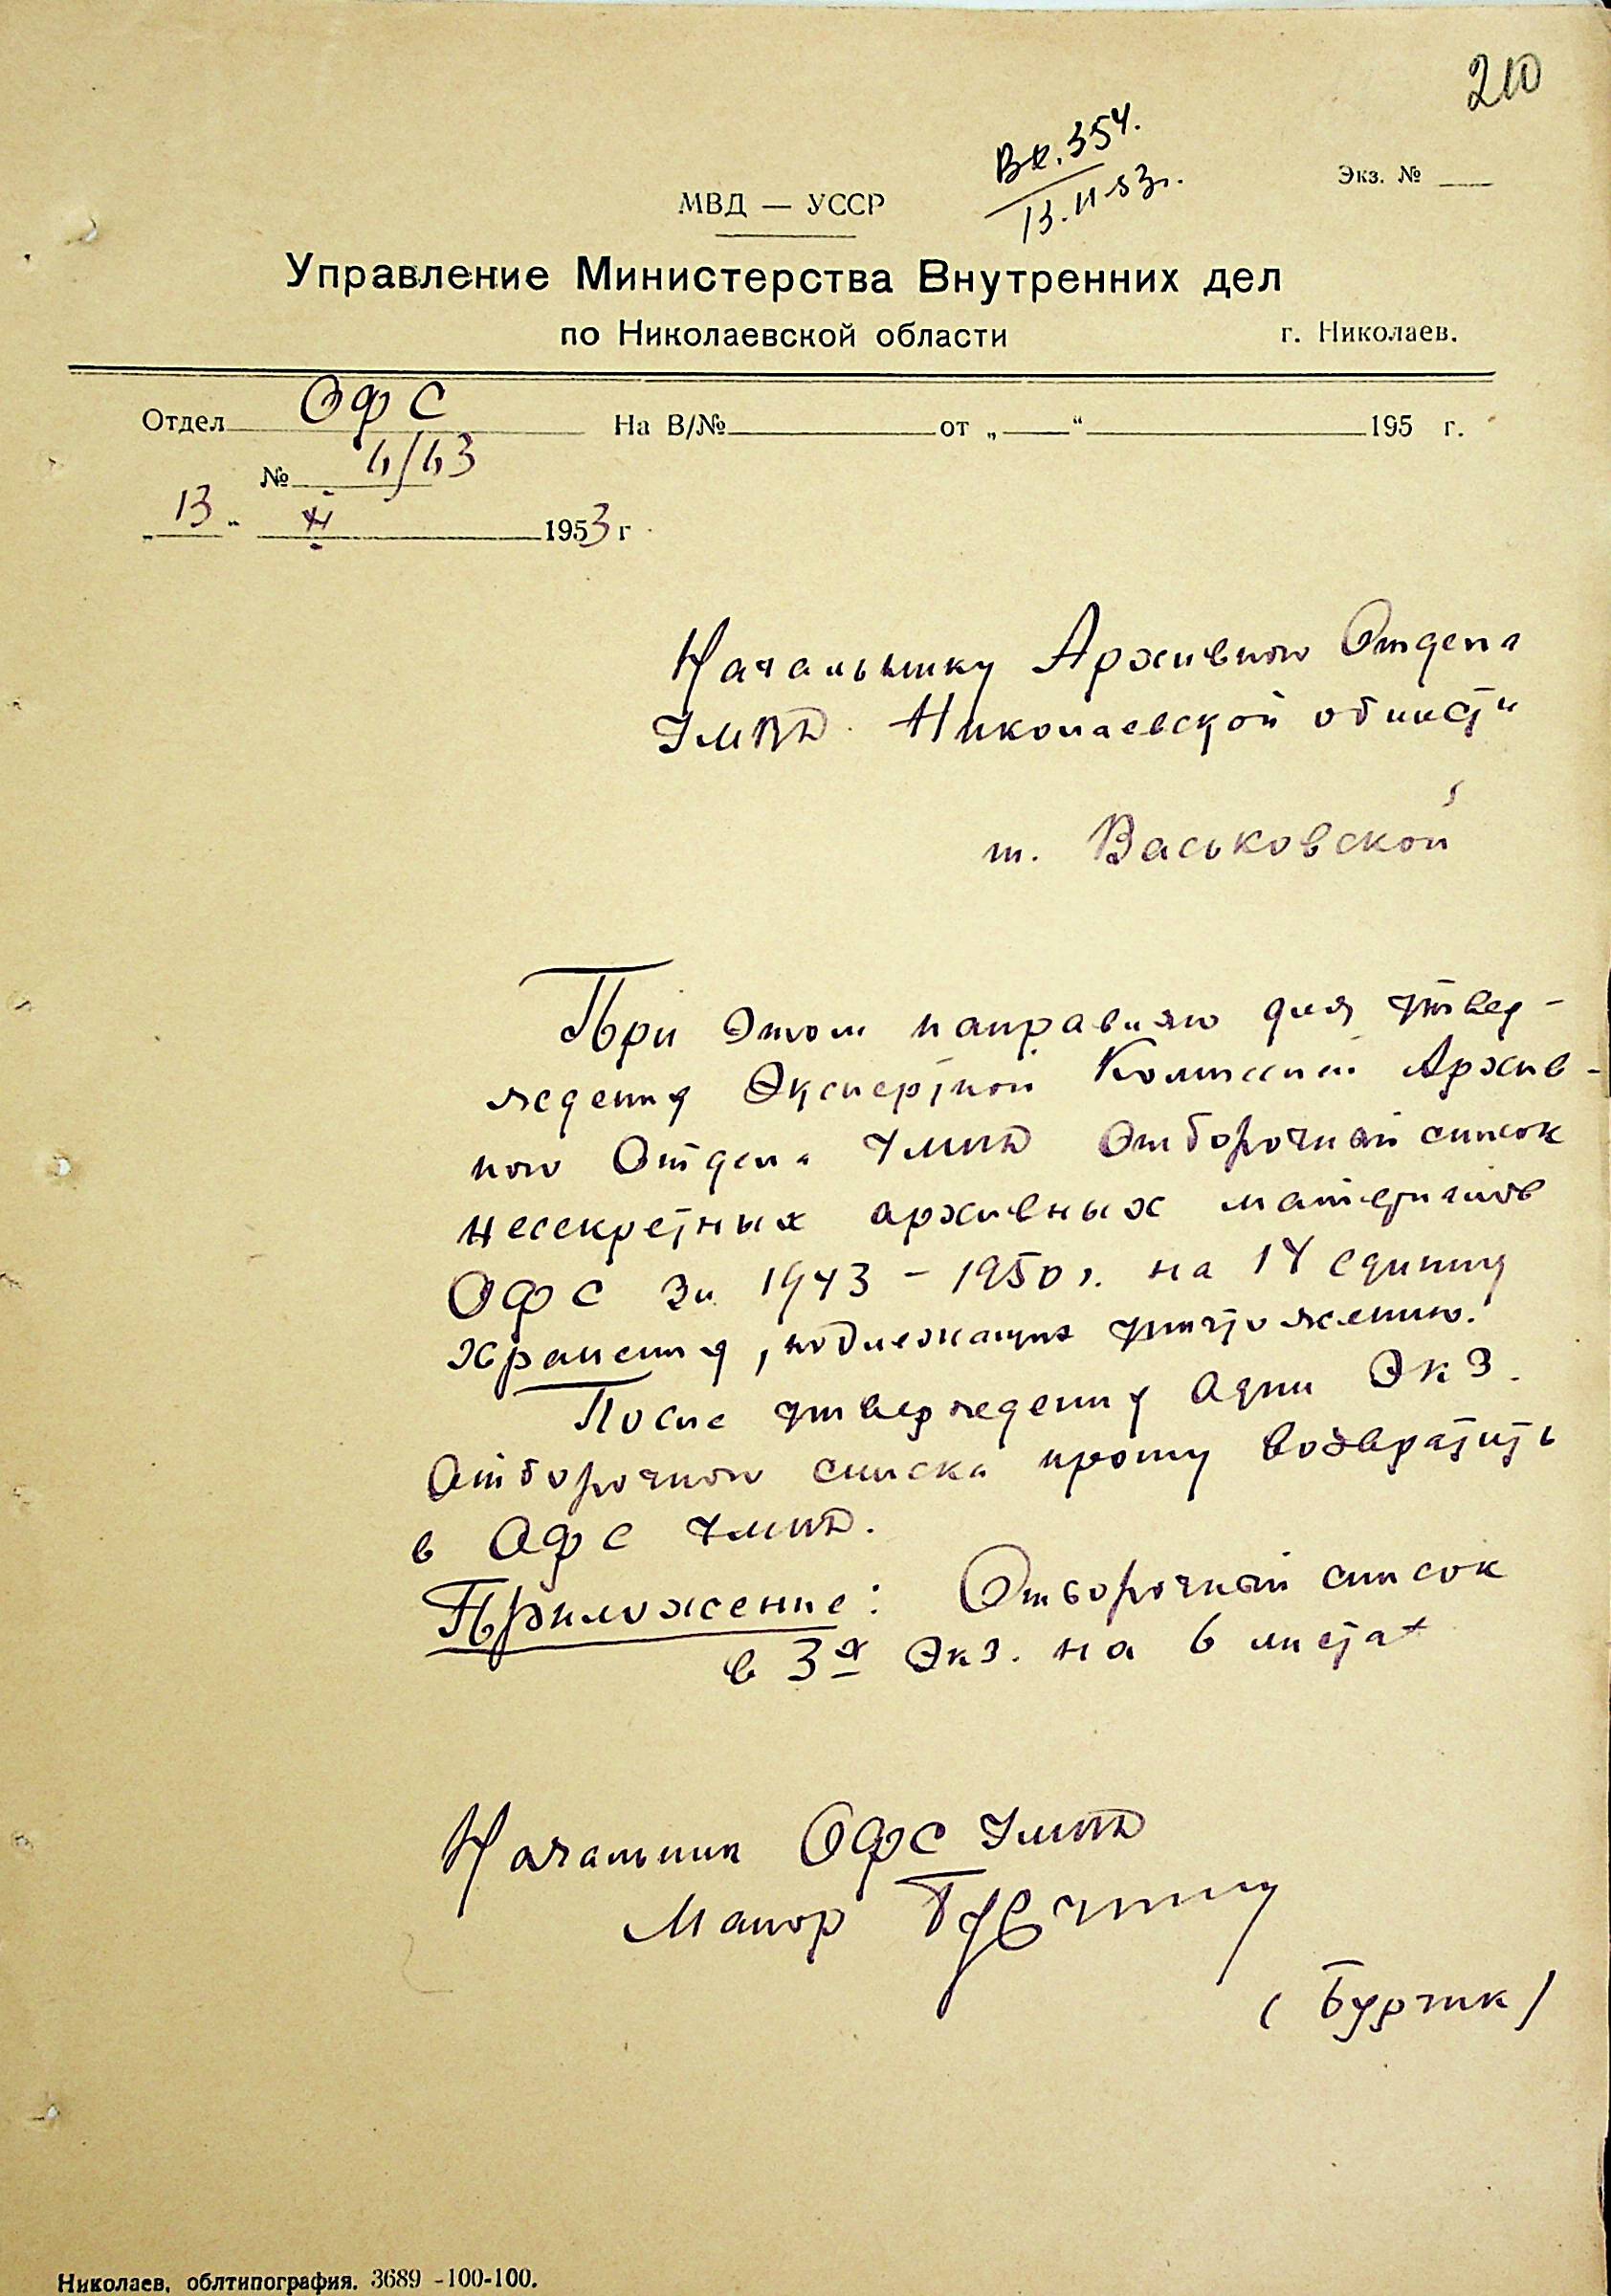 210
Вх. 354.
13.11.53г.
Экз. №
МВД — УССР
Управление Министерства Внутренних дел
по Николаевской области г. Николаев.
Отдел ОФС На В/№ от „ “ 195 г.
№ 4/43
„13“ XI 1953 г.
Начальнику Архивного Отдела
УМВД Николаевской области
т. Васьковской
При этом направляю для утвер-
ждения Экспертной Комиссией Архив-
ного Отдела УМВД Отборочный список
несекретных архивных материалов
ОФС за 1943 – 1950 г. на единиц
хранения, подлежащих уничтожению.
После утверждения один Экз.
Отборочного списка прошу возвратить
в ОФС УМВД.
Приложение: Отборочный список
в 3х Экз. на 6 листах
Начальник ОФС УМВД
Майор
(Бурчик)
Николаев, облтипография. 3689 -100-100.